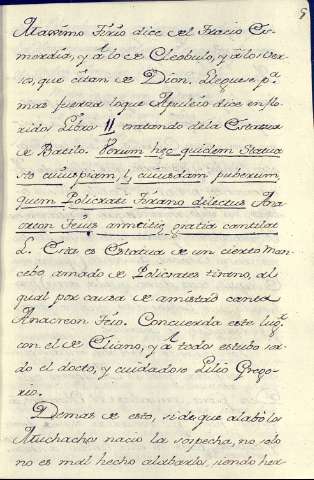 5
Maximo Tirio dice de el Tracio Es-
merdia, y à lo de Cleobulo, y à los ver-
sos, que citan de Dion. Lleguese pª.
mas fuerza lo que Apuleio dice en flo-
ridos Libro II tratando de la Estatua
de Batilo. Verum hec quidem statua
est cuiuspiam, cuiusdam puberum,
quem Policrati Tirano dilectus Ana
creon Teius amicitie gratia cantilat
Esta es Estatua de un cierto man-
cebo amado de Policrates tirano, al
qual por causa de amistad canta
Anacreon Teio. Concuerda este lug.
con el de Eliano, y à todo estubo sor-
do el docto, y cuidadoso Lilio Grego-
rio.
Demas de esto, si de que alabó los
Muchachos nacio la sospecha, no solo
no es mal hecho alabarlos, siendo her-